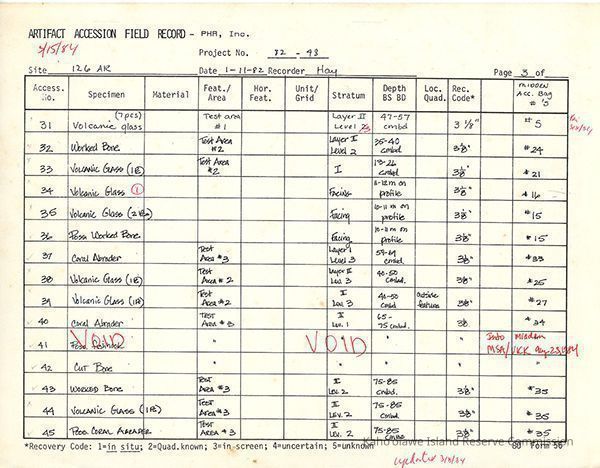 ARTIFACT ACCESSION FIELD RECORD - PHR, Inc.
3/15/84
Project No. 82 - 98
Site 126 AR Date 1-11-82 Recorder Hay Page 3 of
Access. No. Specimen Material Feat./ Area Hor. Feat. Unit/ Grid Stratum Depth BS BD Loc. Quad. Rec. Code* MIDDEN Acc. Bag #'s
31 (7pcs) Volcanic glass Test area #1 Layer II Level 47-57 cmbd 3 1/8" #5
32 Worked Bone Test Area #2 Layer I Level 2 35-40 cmbd 3/8" #24
33 Volcanic Glass Test Area #2 I 13-21 cmbd 3/8" #21
34 Volcanic Glass 1 Facing 11-12 m on profile 3/8" #16
35 Volcanic Glass Facing 10-11 m on profile 3/8" #15
36 Poss Worked Bone Facing 10-11 m on profile 3/8" #15
37 Coral Abrader Test Area #3 Layer 1 Level 3 cmbd. 3/8" #33
38 Volcanic Glass Test Area #2 Layer II Level 3 40-50 cmbd. 3/8" #25
39 Volcanic Glass Test Area #2 I Lev. 3 40-50 cmbd Outside features 3/8" #27
40 Coral Abrader Test Area #3 I Lev. 1 65-75 cmbd. 3/8 #34
41 VOID " VOID " Into Midden MSA/VKK
42 Cut Bone " " " "
43 Worked Bone Test Area #3 I Lev. 2 75-85 cmbd. 3/8" #35
44 Volcanic Glass Test Area #3 I Lev. 2 75-85 cmbd. 3/8" #35
45 Poss. Coral Test Area #3 I Lev. 2 75-85 cmbd 3/8" #35
*Recovery Code: 1=in situ; 2=Quad.known; 3=in screen; 4=uncertain; 5=unknown 80 Form 56
Kaho'olawe Island Reserve Commission
updated 3/8/84